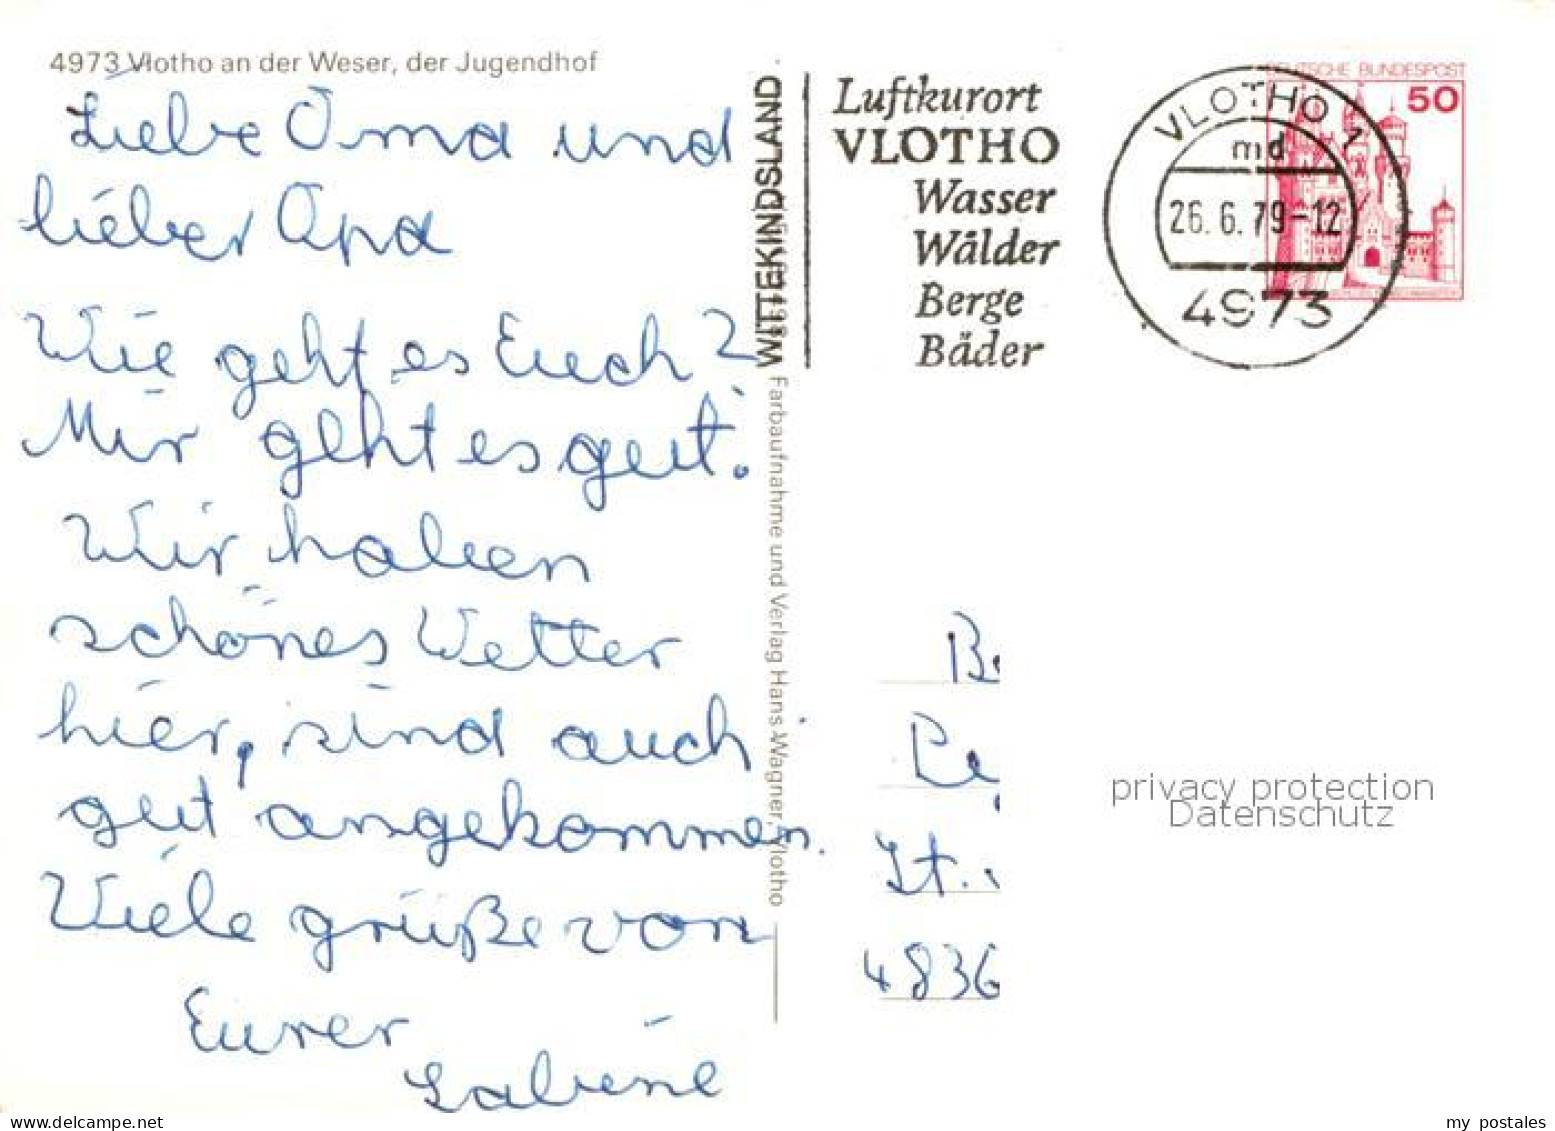 4973 Vlotho an der Weser, der Jugendhof
Liebe Oma und
lieber Opa
Wie geht es Euch?
Mir geht es gut.
Wir haben
schönes Wetter
hier, sind auch
gut angekommen.
Viele grüße von
Eurer
Sabine
WITTEKINDSLAND
Farbaufnahme und Verlag Hans Wagner, Vlotho
Luftkurort
VLOTHO
Wasser
Wälder
Berge
Bäder
DEUTSCHE BUNDESPOST
50
VLOTHO 1
md
26.6.79-12
4973
4836
privacy protection
Datenschutz
my postales